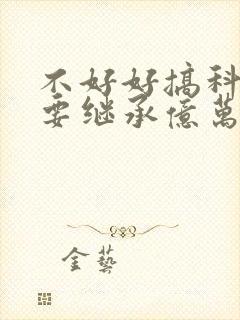 不好好搞科
要继承億萬
金藝